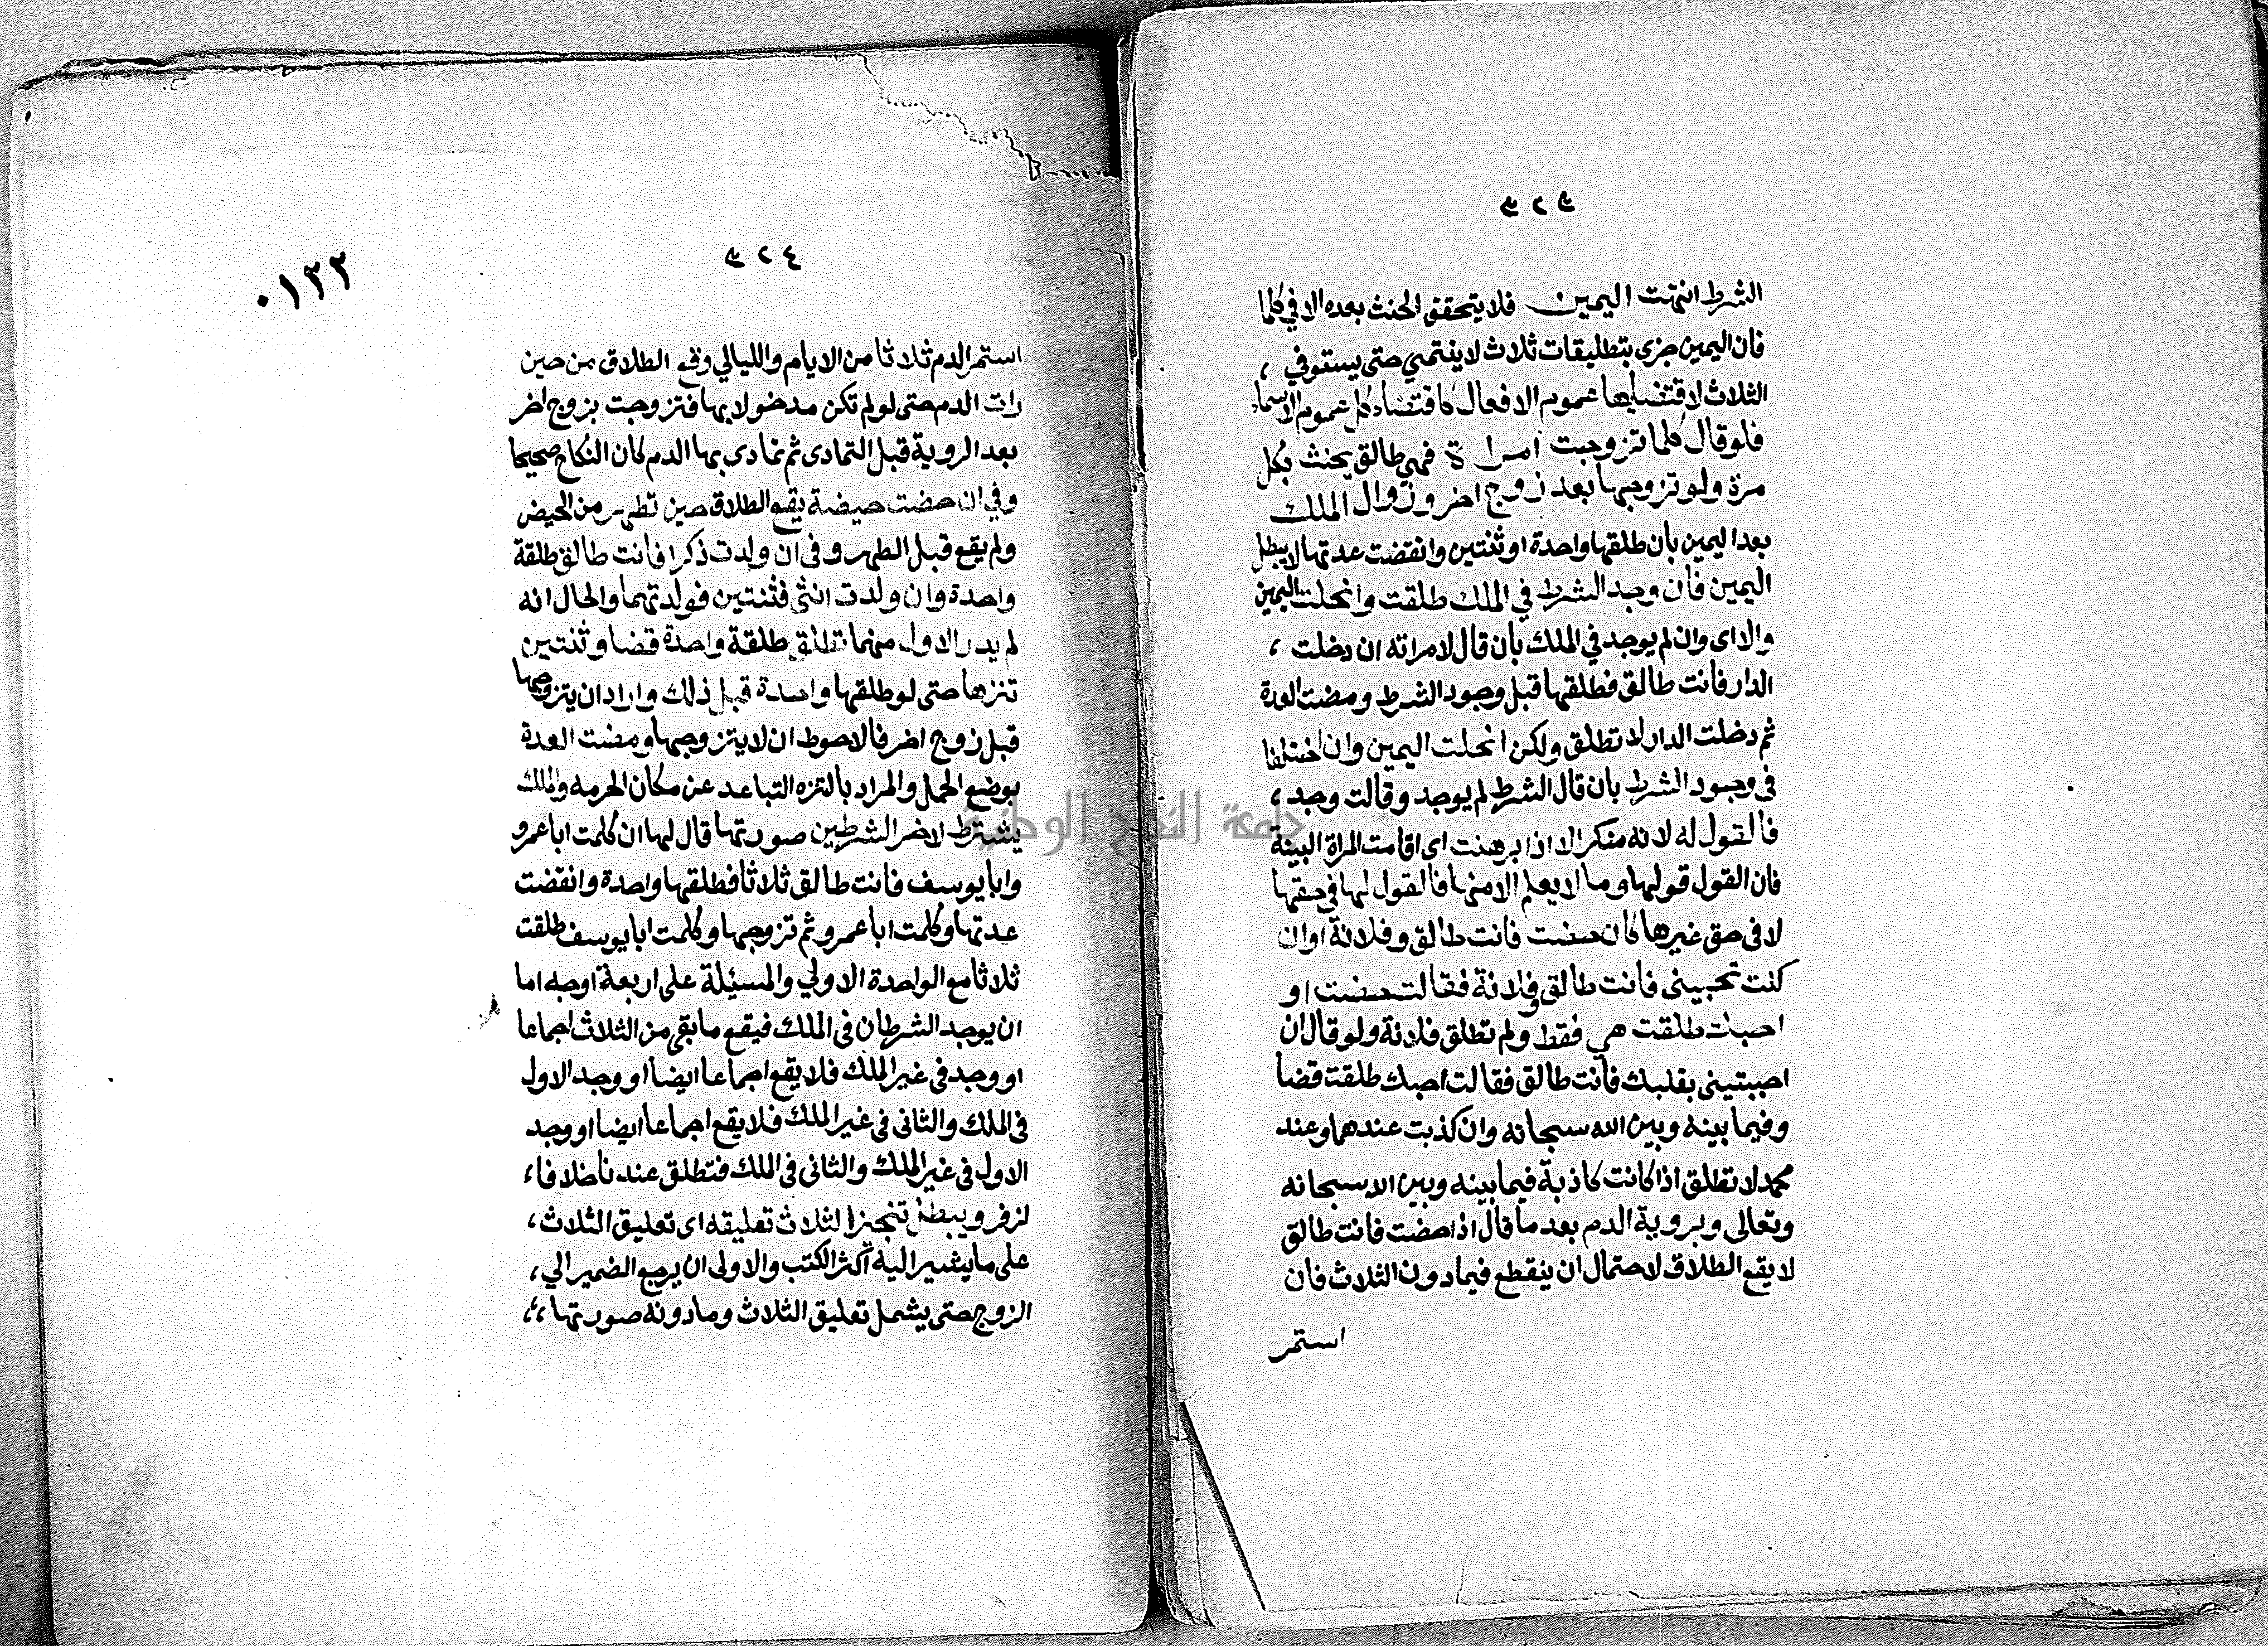 الشرط انتهت اليمين فلا يتحقق الحنث بعده الا في كلما
فان اليمين جزي بتطليقات ثلاث لا ينتهي حتى يستوفي ،
الثلاث لاقتضايها عموم الافعال كاقتضاء كل عموم الاسماء
فلو قال كلما تزوجت امراة فهي طالق يحنث بكل
مرة ولو تزوجها بعد زوج اخر وزوال الملك
بعد اليمين بان طلقها واحدة او ثنتين وانقضت عدتها لا يبطل
اليمين فان وجد الشرط في الملك طلقت وانحلت اليمين
والا اى وان لم يوجد في الملك بان قال لامراته ان دخلت ،
الدار فانت طالق فطلقها قبل وجود الشرط ومضت العدة
ثم دخلت الدار لا تطلق ولكن انحلت اليمين وان اختلفا
في وجود الشرط بان قال الشرط لم يوجد وقالت وجد ،
فالقول له لانه منكر الا اذا برهنت اى اقامت المراة البينة
فان القول قولها وما لا يعلم الا منها فالقول لها في حقها
لا في حق غيرها كان حضت فانت طالق وفلانة او ان
كنت تحبينى فانت طالق وفلانة فقالت حضت او
احبك طلقت هي فقط ولم تطلق فلانة ولو قال ان
احببتينى بقلبك فانت طالق فقالت احبك طلقت قضا
وفيما بينه وبين الله سبحانه وان كذبت عندهما وعند
محمد لا تطلق اذا كانت كاذبة فيما بينه وبين الله سبحانه
وتعالى وبروية الدم بعد ما قال اذا حضت فانت طالق
لا يقع الطلاق لاحتمال ان ينقطع فيما دون الثلاث فان
استمر
٥٢٤
٠١٣٣
استمر الدم ثلاثا من الايام والليالي وقع الطلاق من حين
رات الدم حتى لو لم تكن مدخولا بها فتزوجت بزوج اخر
بعد الروية قبل التمادى ثم تمادى بها الدم كان النكاح صحيحا
وفي ان حضت حيضة يقع الطلاق حين تطهر من الحيض
ولم يقع قبل الطهر وفي ان ولدت ذكرا فانت طالق طلقة
واحدة وان ولدت انثى فثنتين فولدتهما والحال انه
لم يدر الاول منهما تطلق طلقة واحدة قضا وثنتين
تنزها حتى لو طلقها واحدة قبل ذلك واراد ان يتزوجها
قبل زوج اخر فالاحوط ان لا يتزوجها ومضت العدة
بوضع الحمل والمراد بالتنزه التباعد عن مكان الحرمه والملك
يشترط لاخر الشرطين صورتها قال لها ان كلمت ابا عمرو
وابا يوسف فانت طالق ثلاثا فطلقها واحدة وانقضت
عدتها وكلمت ابا عمرو ثم تزوجها وكلمت ابا يوسف طلقت
ثلاثا مع الواحدة الاولي والمسئلة على اربعة اوجه اما
ان يوجد الشرطان في الملك فيقع ما بقي من الثلاث اجماعا
او وجد في غير الملك فلا يقع اجماعا ايضا او وجد الاول
في الملك والثانى في غير الملك فلا يقع اجماعا ايضا او وجد
الاول في غير الملك والثانى في الملك فتطلق عندنا خلافا ،
لزفر ويبطل تنجيز الثلاث تعليقه اى تعليق الثلاث ،
على ما يشير اليه اكثر الكتب والاولى ان يرجع الضمير الي ،
الزوج حتى يشمل تعليق الثلاث وما دونه صورتها ،،
جامعة النجاح الوطنية